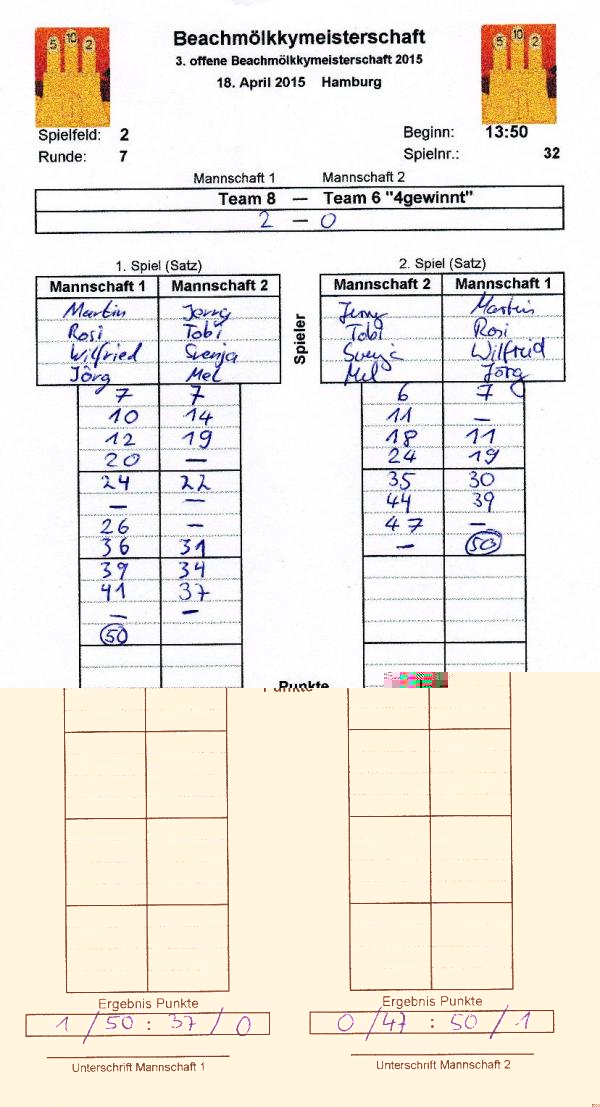 5 10 2
Beachmölkkymeisterschaft
5 10 2
3. offene Beachmölkkymeisterschaft 2015
18. April 2015 Hamburg
Spielfeld: 2
Beginn: 13:50
Runde: 7
Spielnr.: 32
Mannschaft 1 Mannschaft 2
Team 8 — Team 6 "4gewinnt"
2 – 0
1. Spiel (Satz)
Mannschaft 1 Mannschaft 2
Martin
Rosi Tobi
Wilfried Svenja
Jörg Mel
7 7
10 14
12 19
20 –
24 22
– –
26 –
36 31
39 34
41 37
– –
50
Spieler
2. Spiel (Satz)
Mannschaft 2 Mannschaft 1
Martin
Tobi Rosi
Svenja Wilfried
Mel Jörg
6 7
11 –
18 11
24 19
35 30
44 39
47 –
– 50
Punkte
Punkte
Ergebnis Punkte
1 / 50 : 37 / 0
Unterschrift Mannschaft 1
Ergebnis Punkte
0 / 47 : 50 / 1
Unterschrift Mannschaft 2